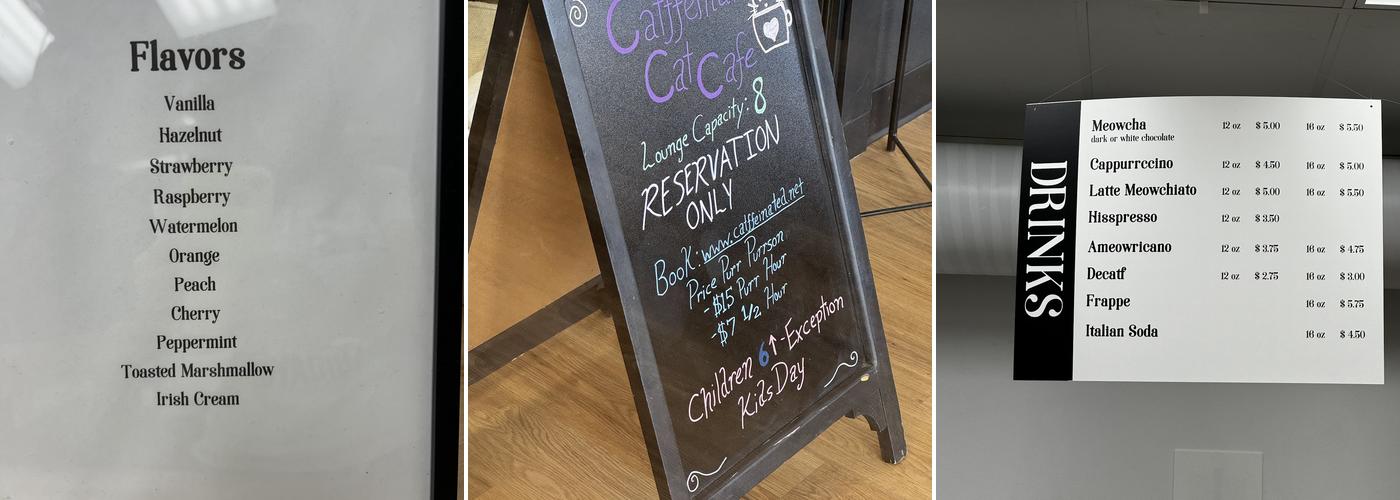 Flavors
Vanilla
Hazelnut
Strawberry
Raspberry
Watermelon
Orange
Peach
Cherry
Peppermint
Toasted Marshmallow
Irish Cream
Catffeinated
Cat Cafe
Lounge Capacity: 8
RESERVATION
ONLY
Book: www.catffeinated.net
Price Purr Purrson
-$15 Purr Hour
-$7 1/2 Hour
Children 6↑-Exception
Kids Day
DRINKS
Meowcha 12 oz $ 5.00 16 oz $ 5.50
dark or white chocolate
Cappurrccino 12 oz $ 4.50 16 oz $ 5.00
Latte Meowchiato 12 oz $ 5.00 16 oz $ 5.50
Hisspresso 12 oz $ 3.50
Ameowricano 12 oz $ 3.75 16 oz $ 4.75
Decatf 12 oz $ 2.75 16 oz $ 3.00
Frappe 16 oz $ 5.75
Italian Soda 16 oz $ 4.50